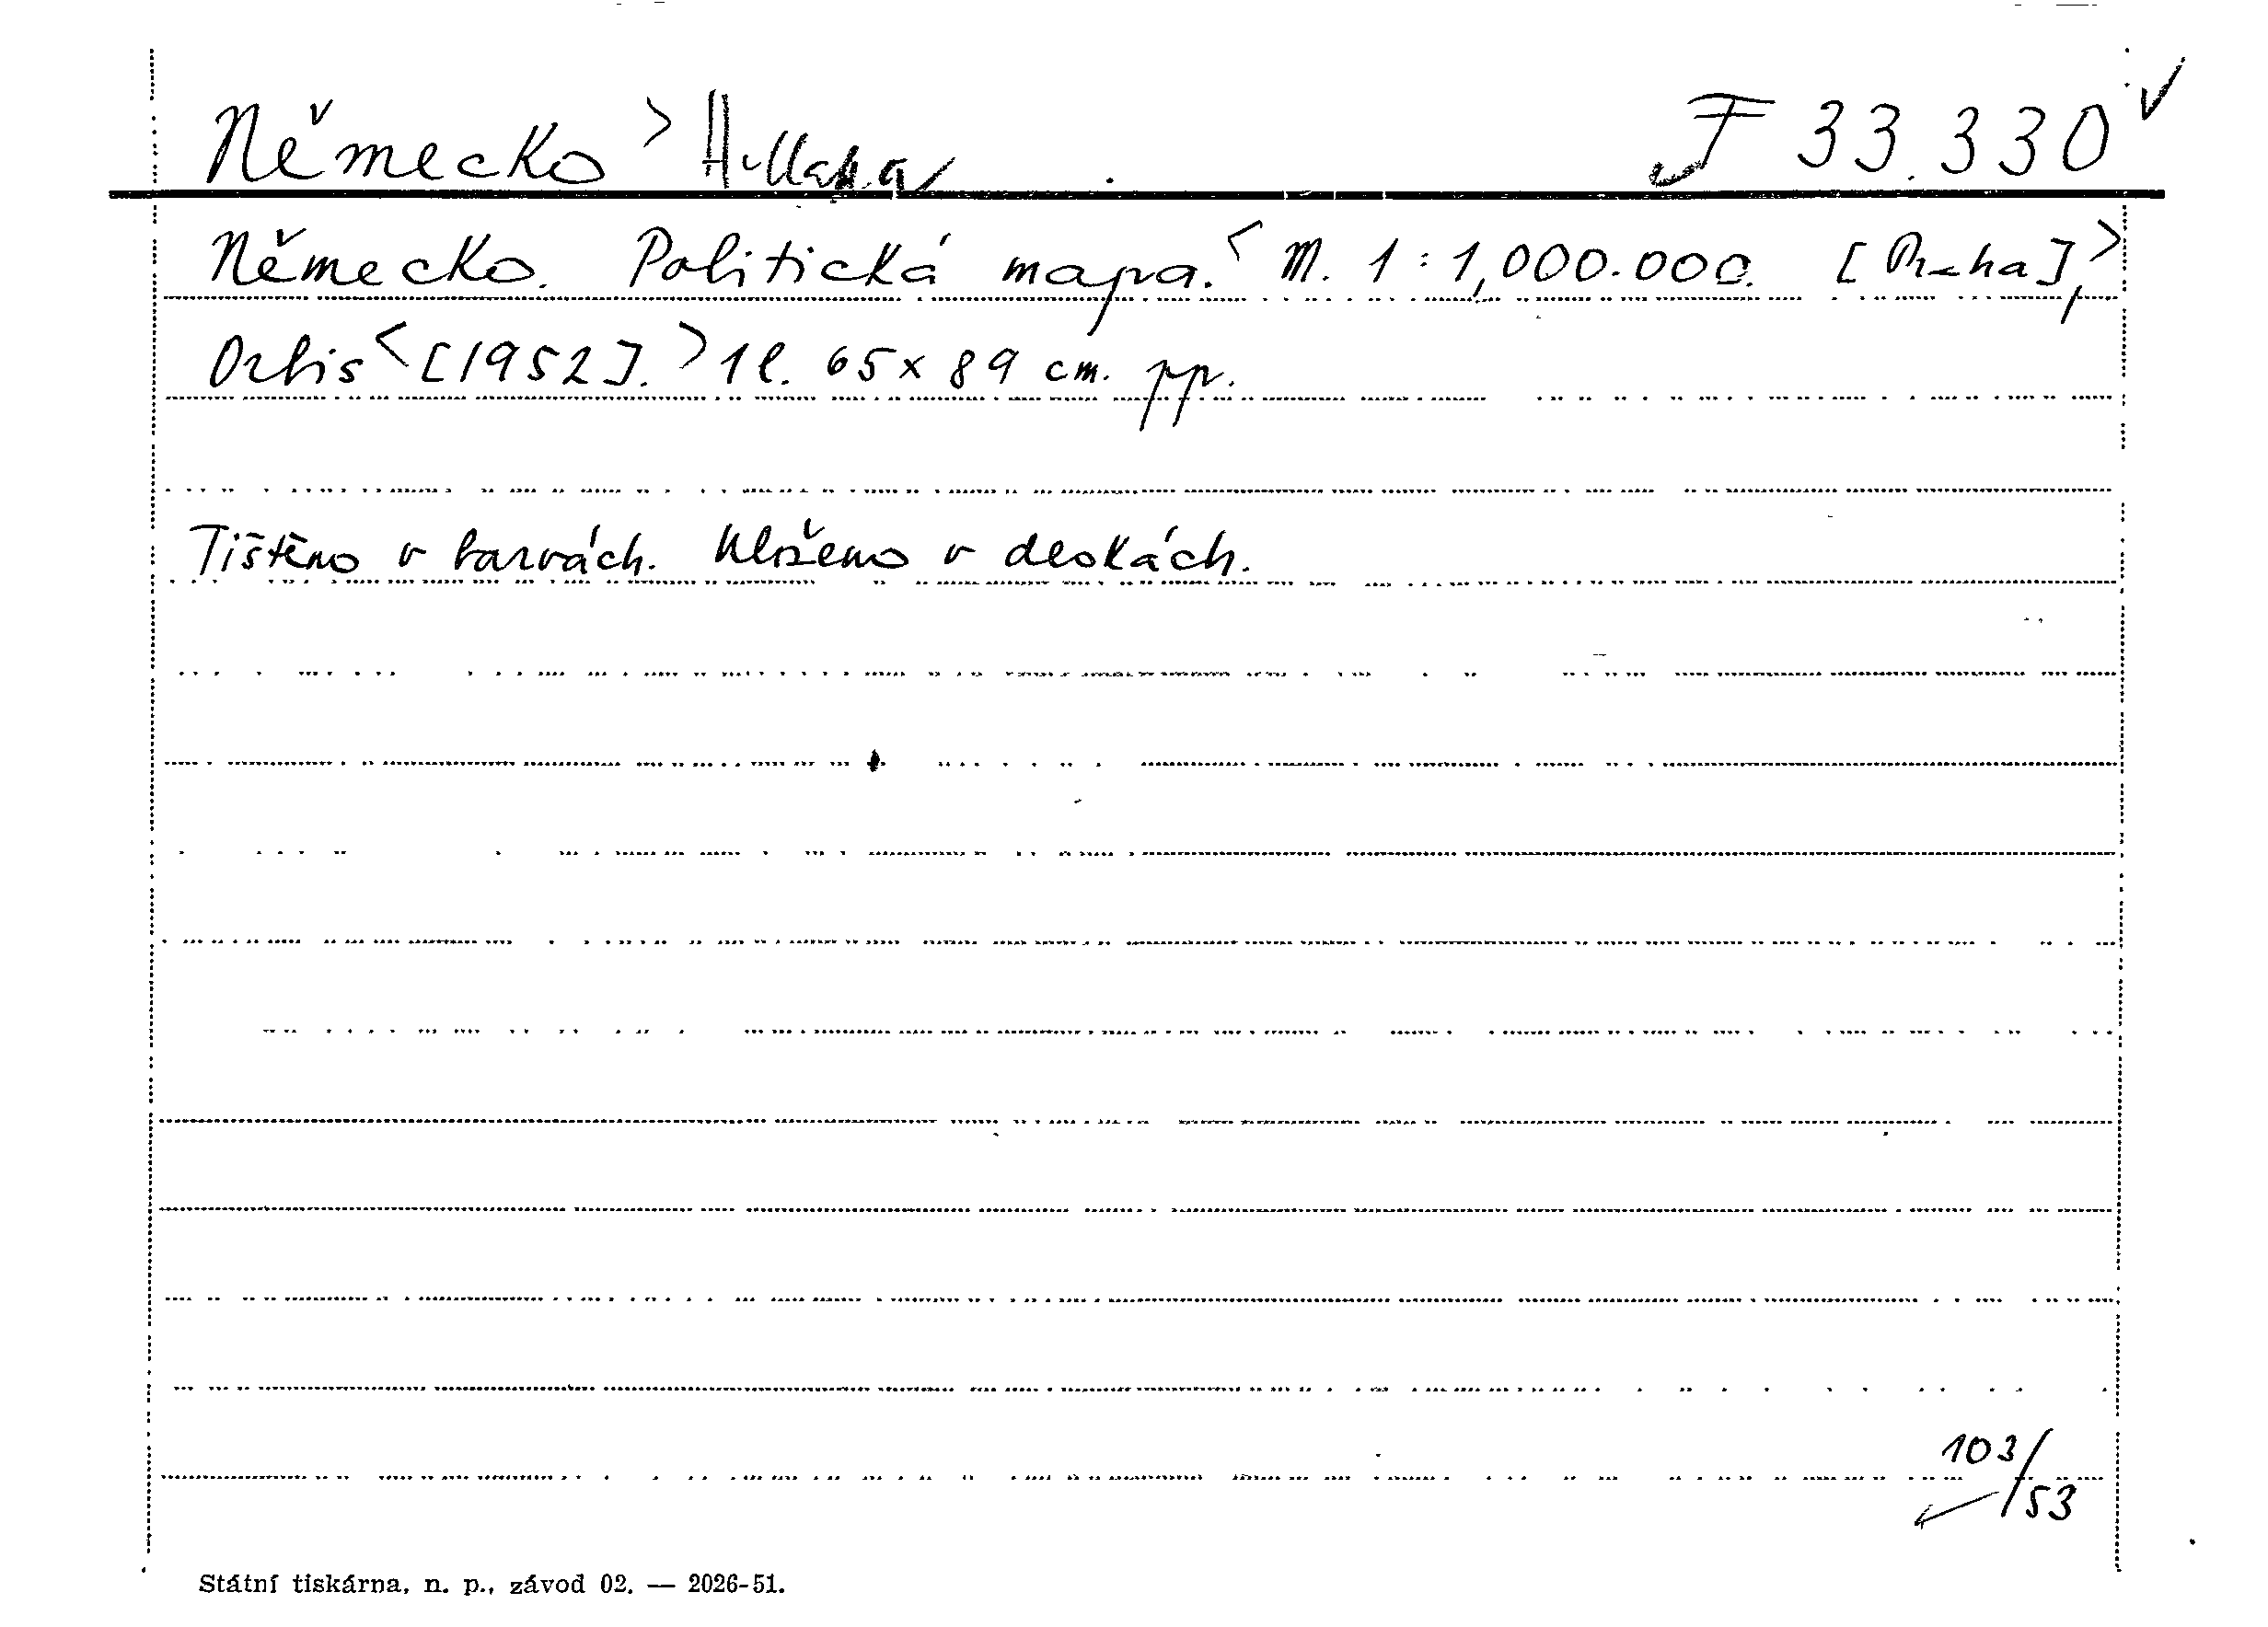 Německo > F 33.330 ✓
Německo. Politická mapa. < M. 1 : 1,000.000. [Praha], >
Orbis < [1952]. > 1 l. 65 x 89 cm. pp.
Tištěno v barvách. Uloženo v deskách.
103/53
Státní tiskárna, n. p., závod 02. — 2026-51.